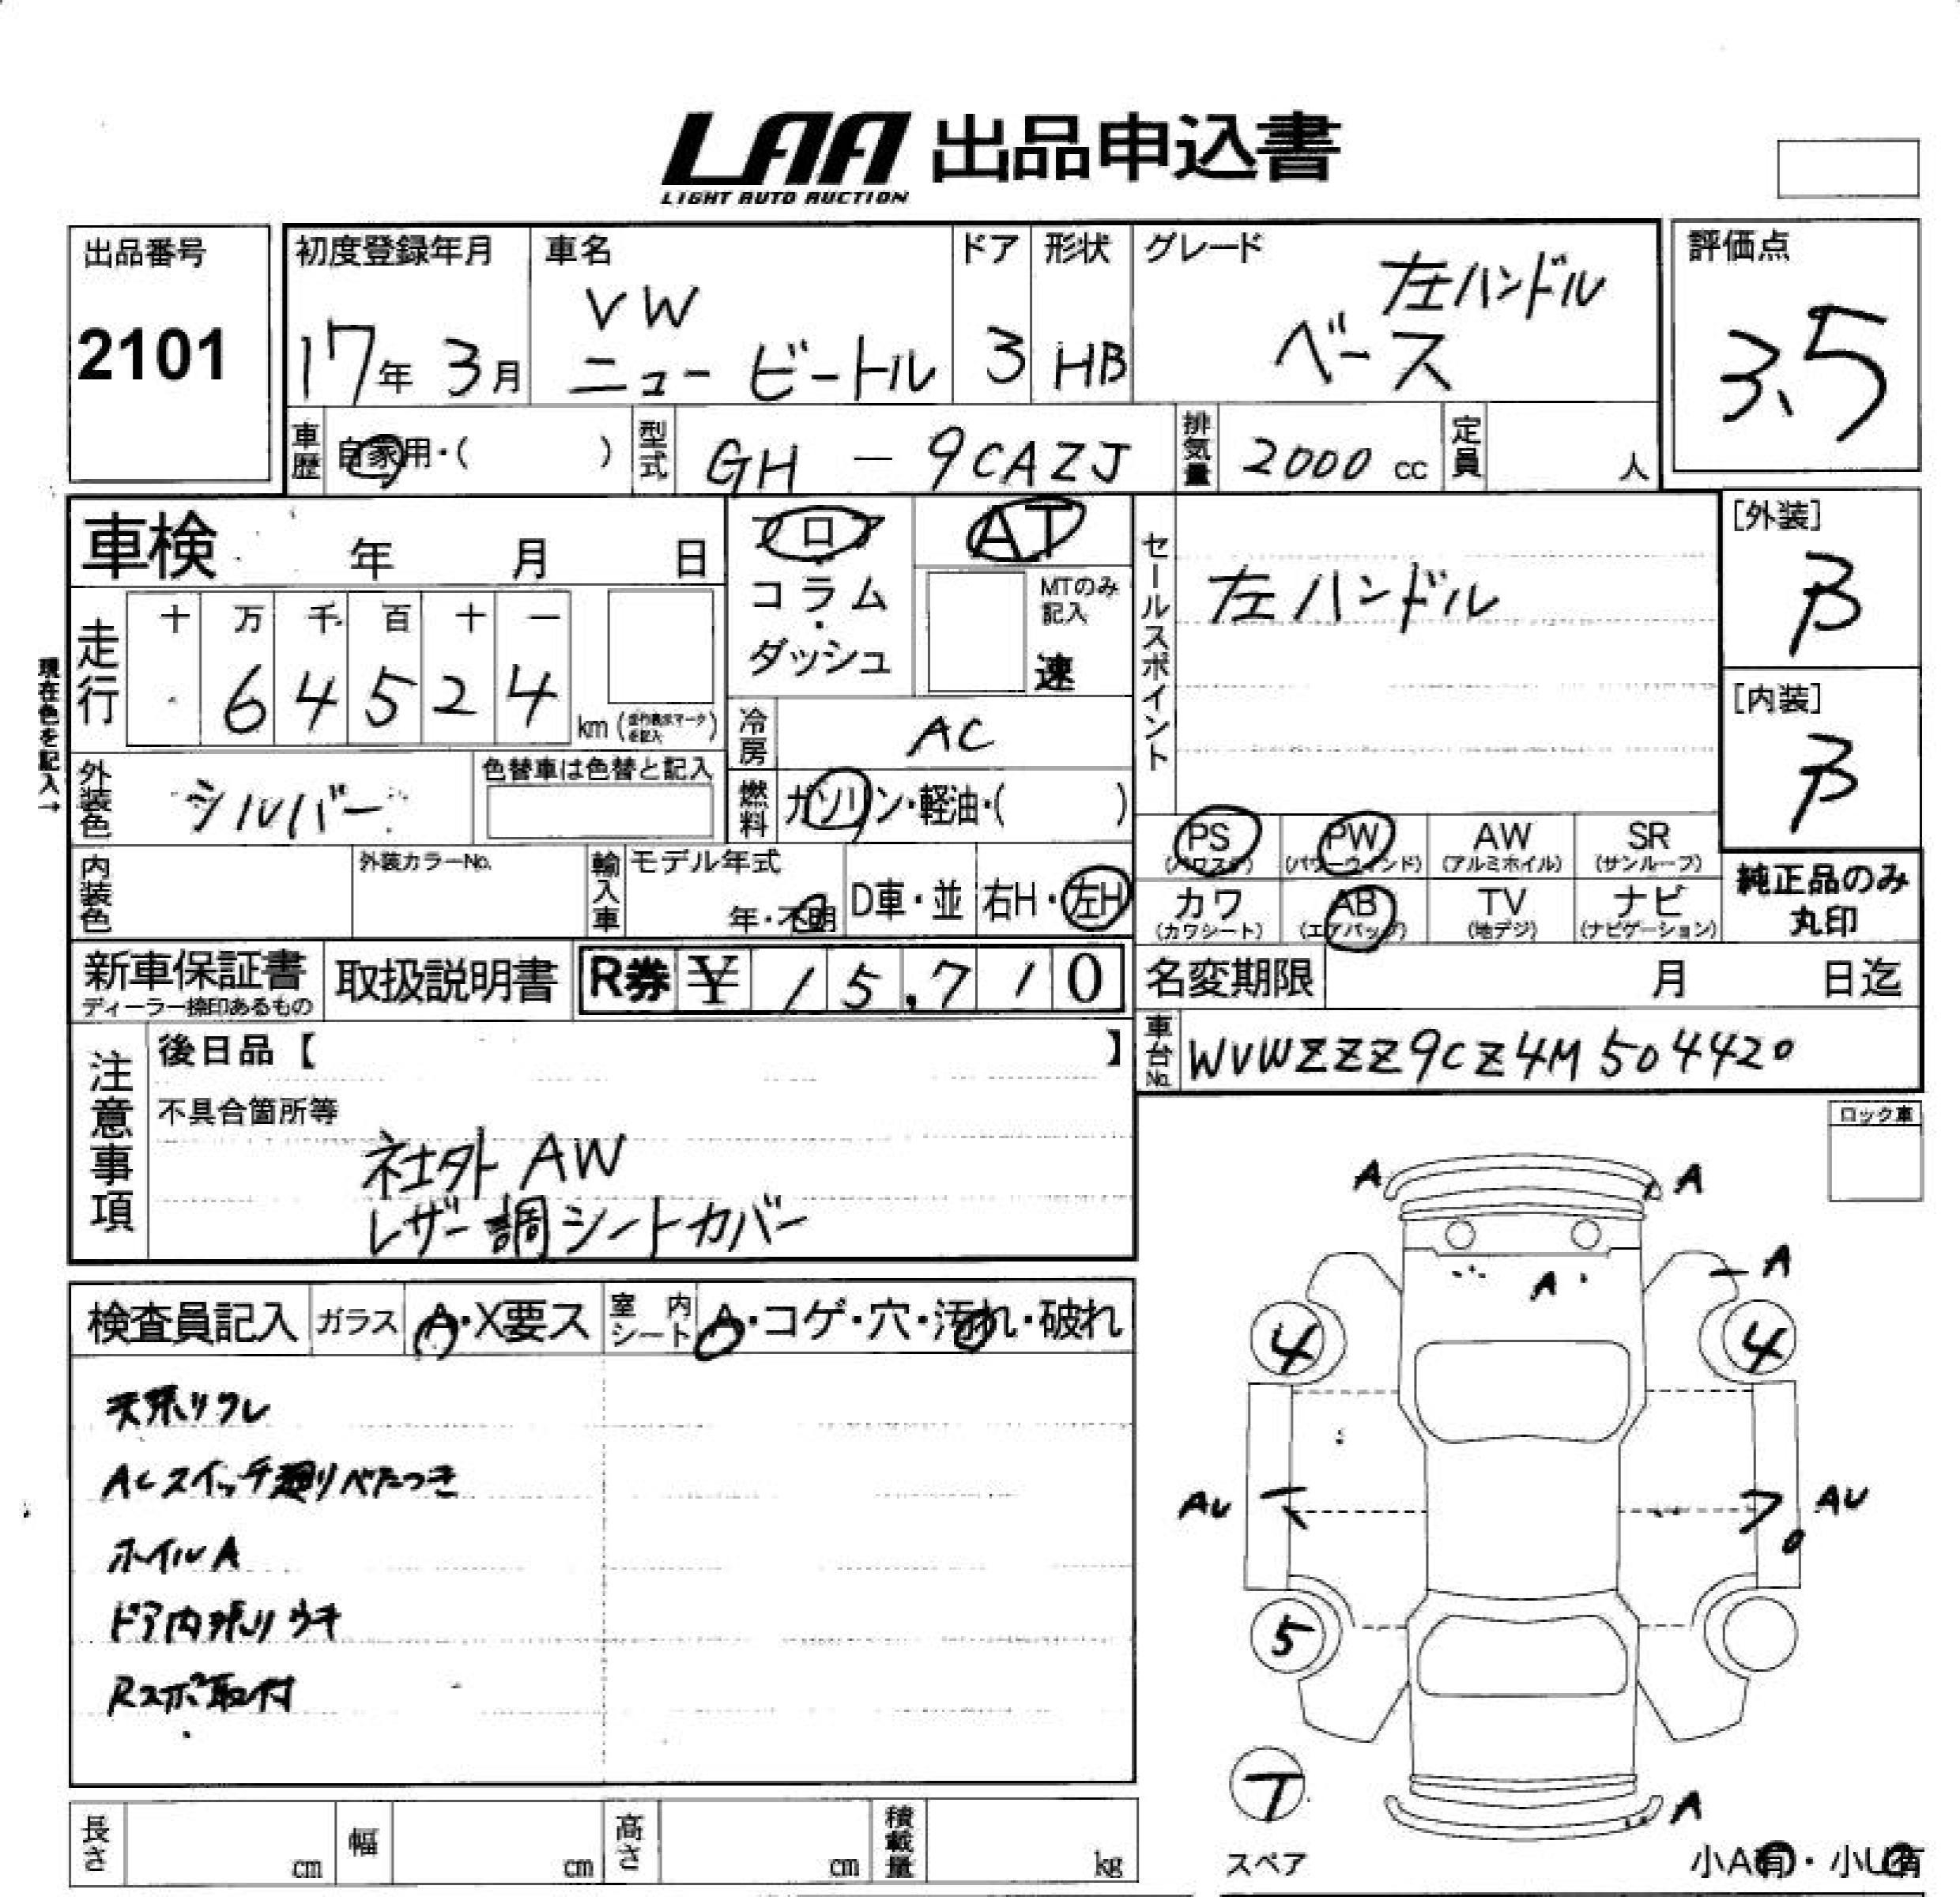 LAA 出品申込書
LIGHT AUTO AUCTION
出品番号
2101
初度登録年月
17年 3月
車名
VW
ニュービートル
ドア
3
形状
HB
グレード
左ハンドル
ベース
評価点
3.5
車歴
自家用・( )
型式
GH - 9CAZJ
排気量
2000 cc
定員
人
車検 年 月 日
フロア
・
コラム
・
ダッシュ
AT
MTのみ
記入
速
セールスポイント
左ハンドル
[外装]
B
[内装]
B
現在色を記入→
走行
十 万 千 百 十 一
6 4 5 2 4
km
冷房
AC
外装色
シルバー
色替車は色替と記入
燃料
ガソリン・軽油・( )
PS
(パワステ)
PW
(パワーウィンド)
AW
(アルミホイル)
SR
(サンルーフ)
カワ
(カワシート)
AB
(エアバッグ)
TV
(地デジ)
ナビ
(ナビゲーション)
純正品のみ
丸印
内装色
外装カラーNo.
輸入車
モデル年式
年・不明
D車・並
右H・左H
新車保証書
ディーラー捺印あるもの
取扱説明書
R券 ¥ 15,710
名変期限 月 日迄
車台No.
WVWZZZ9CZ4M504420
注意事項
後日品【 】
不具合箇所等
社外 AW
レザー調シートカバー
ロック車
検査員記入
ガラス
A・X要ス
室内
シート
A・コゲ・穴・汚れ・破れ
天張リワレ
ACスイッチ廻りべたつき
ホイルA
ドア内張りウキ
Rスポ取付
A A
A A
4 4
AU AU
5
T
スペア
A
小A有・小U有
長さ cm
幅 cm
高さ cm
積載量 kg